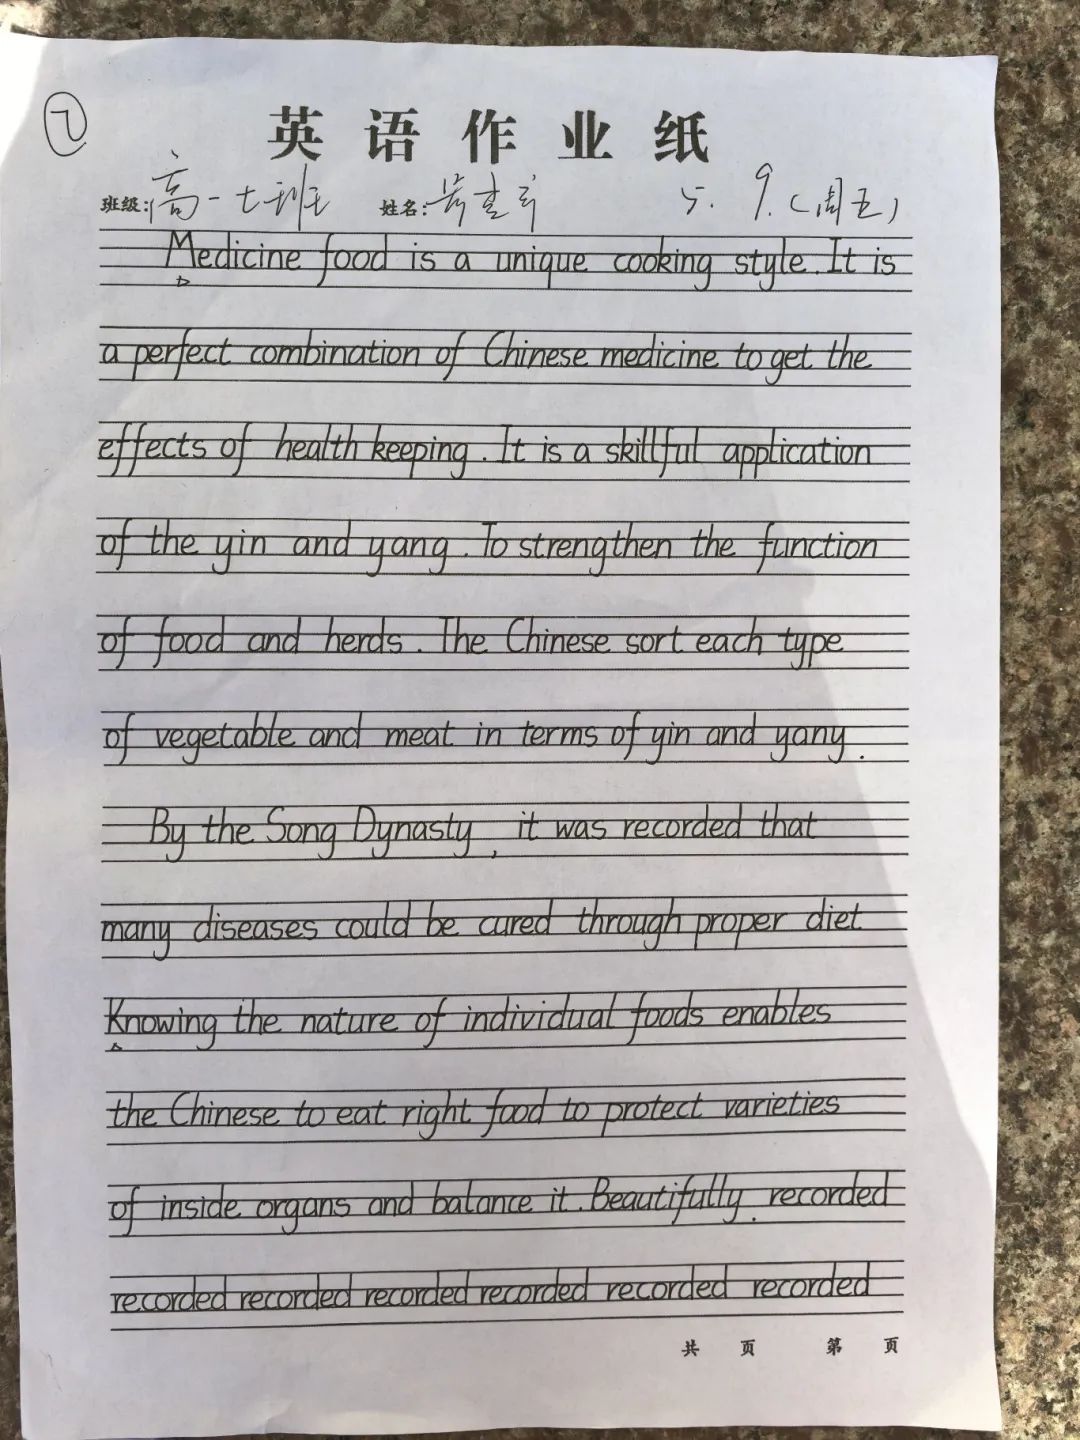 7
英语作业纸
班级: 高一七班 姓名: 5.9.(周五)
Medicine food is a unique cooking style. It is
a perfect combination of Chinese medicine to get the
effects of health keeping. It is a skillful application
of the yin and yang. To strengthen the function
of food and herds. The Chinese sort each type
of vegetable and meat in terms of yin and yany.
By the Song Dynasty, it was recorded that
many diseases could be cured through proper diet
Knowing the nature of individual foods enables
the Chinese to eat right food to protect varieties
of inside organs and balance it. Beautifully. recorded
recorded recorded recorded recorded recorded recorded
共 页 第 页